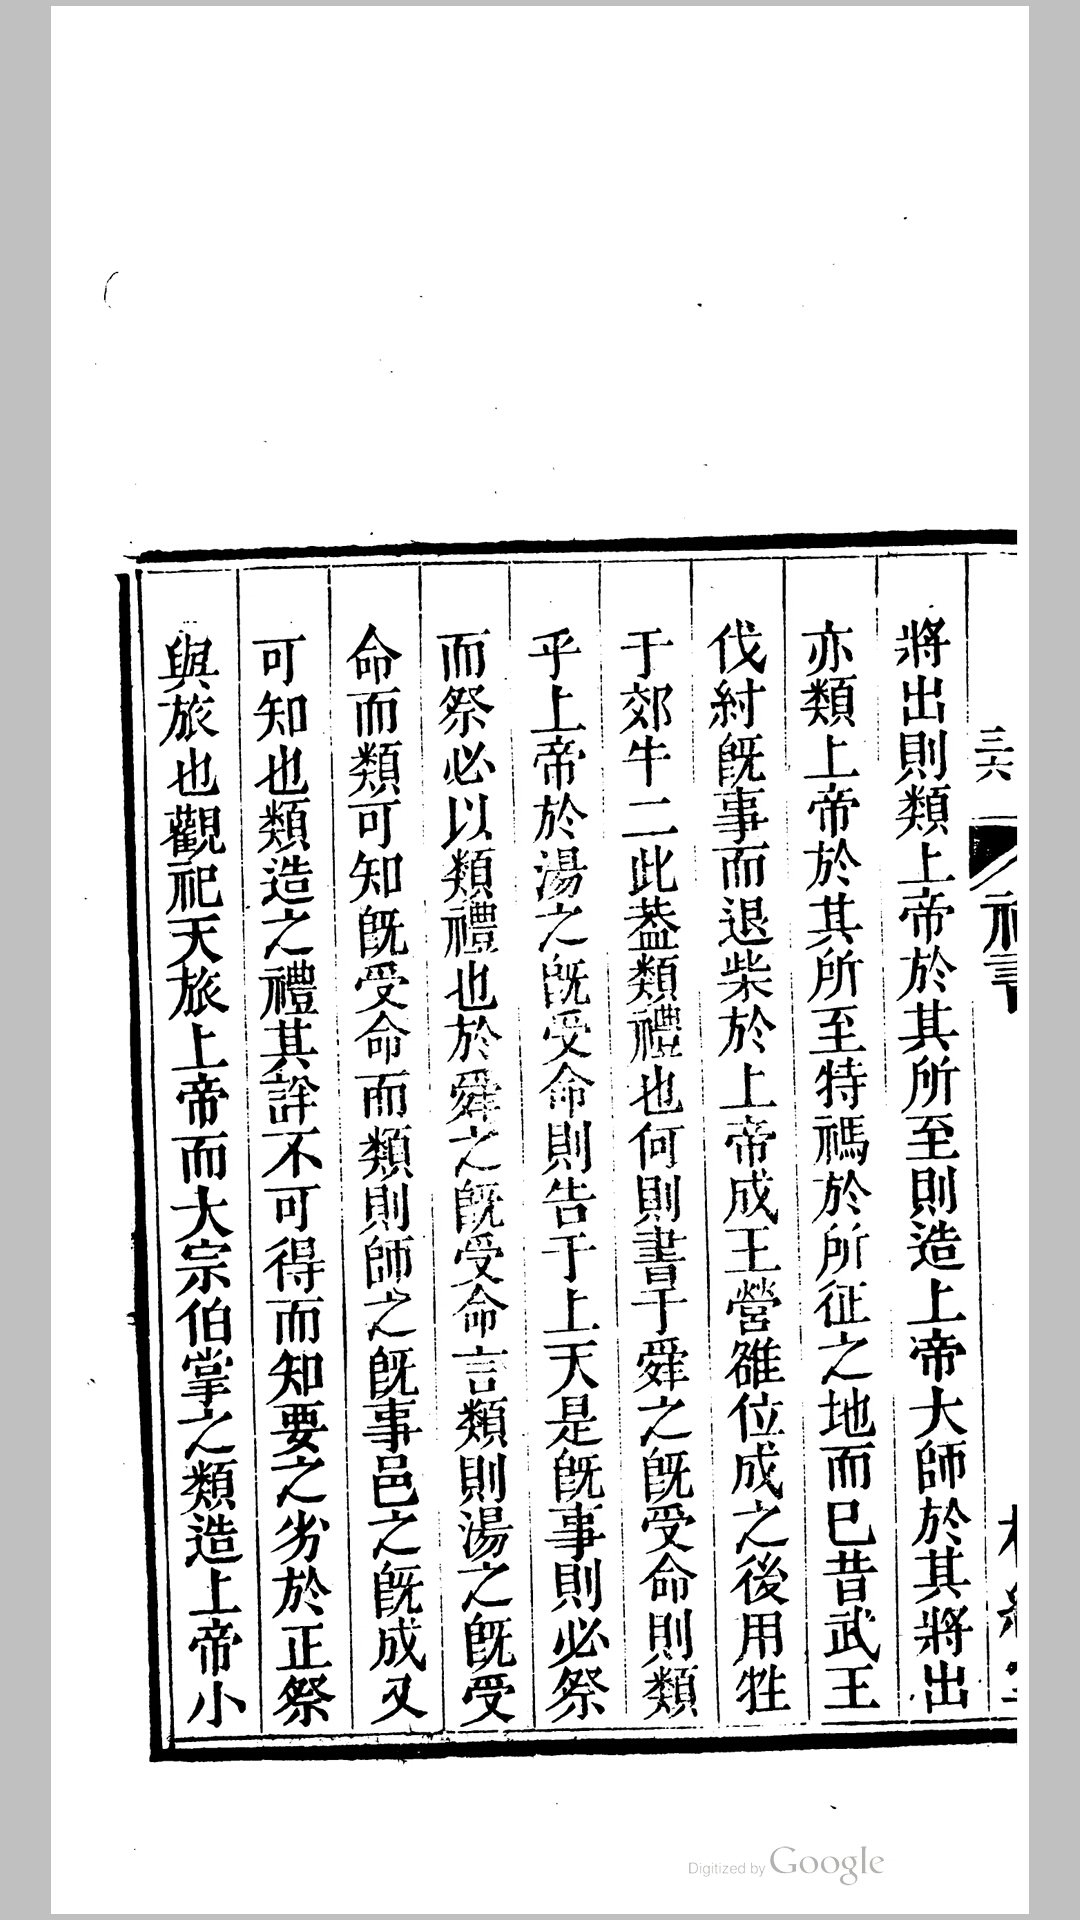 三六
將出則類上帝於其所至則造上帝大師於其將出
亦類上帝於其所至特禡於所征之地而巳昔武王
伐紂旣事而退柴於上帝成王營雒位成之後用牲
于郊牛二此葢類禮也何則書于舜之旣受命則類
乎上帝於湯之旣受命則告于上天是旣事則必祭
而祭必以類禮也於舜之旣受命言類則湯之旣受
命而類可知旣受命而類則師之旣事邑之旣成又
可知也類造之禮其詳不可得而知要之劣於正祭
與旅也觀祀天旅上帝而大宗伯掌之類造上帝小
Digitized by Google